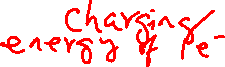 charging
energy of 1 e⁻